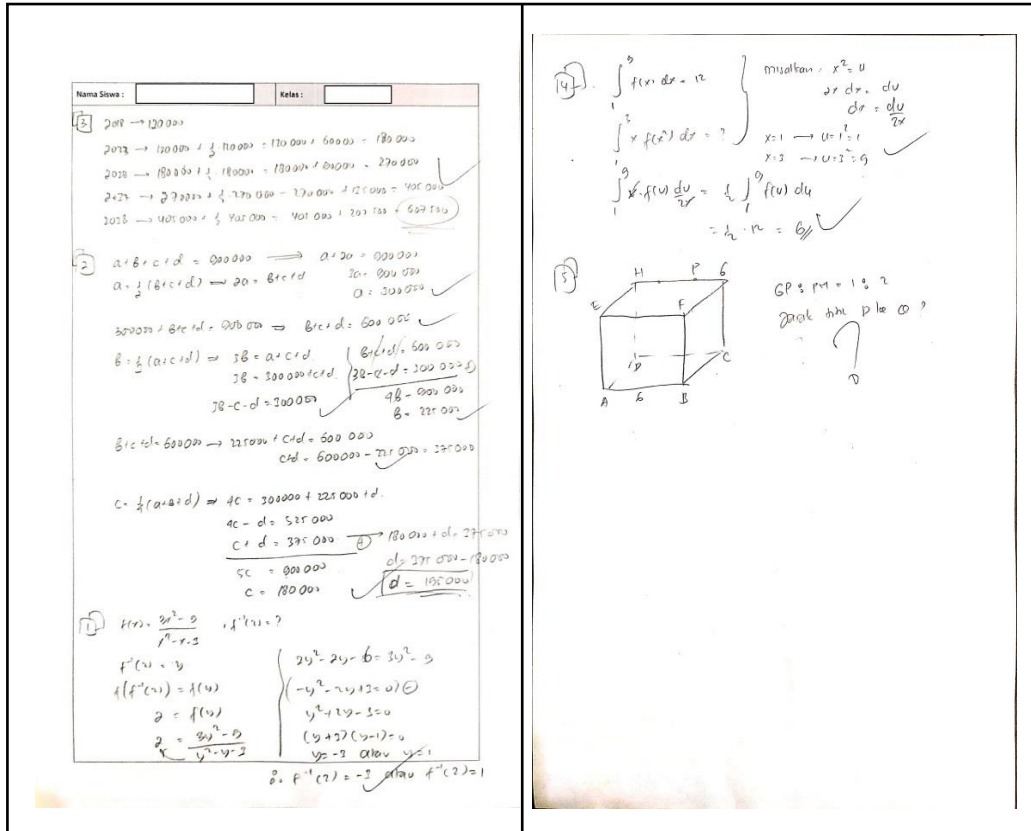 Nama Siswa :
Kelas :
3 2018 → 120 000
2023 → 120 000 + 1/2 · 120 000 = 120 000 + 60000 = 180 000
2028 → 180 000 + 1/2 · 180000 = 180000 + 90000 = 270 000
2033 → 270000 + 1/2 · 270 000 = 270 000 + 135 000 = 405 000
2038 → 405 000 + 1/2 405 000 = 405 000 + 202 500 = 607 500
2 a+b+c+d = 900000 ⟹ a+2a = 900000
a = 1/2 (b+c+d) ⟹ 2a = b+c+d 3a = 900 000
a = 300 000
300000 + b+c+d = 900 000 ⟹ b+c+d = 600 000
b = 1/3 (a+c+d) ⟹ 3b = a+c+d
3b = 300 000+c+d
3b-c-d = 300000
b+c+d = 600 000
3b-c-d = 300 000 +
4b = 900 000
b = 225 000
b+c+d = 600000 → 225000 + c+d = 600 000
c+d = 600000 - 225 000 = 375000
c = 1/4 (a+b+d) ⟹ 4c = 300000 + 225 000 + d.
4c - d = 525 000
c + d = 375 000 +
5c = 900000
c = 180000
180 000 + d = 375 000
d = 375 000 - 180000
d = 195000
1 f(x) = 3x²-9 / x²-x-3 , f⁻¹(2) = ?
f⁻¹(2) = y
f(f⁻¹(2)) = f(y)
2 = f(y)
2 = 3y²-9 / y²-y-3
2y²-2y-6 = 3y²-9
(-y²-2y+3=0) -
y²+2y-3=0
(y+3)(y-1)=0
y=-3 atau y=1
∴ f⁻¹(2) = -3 atau f⁻¹(2)=1
4. ∫₁⁹ f(x) dx = 12
∫₁³ x f(x²) dx = ?
misalkan : x² = u
2x dx = du
dx = du/2x
x=1 → u=1²=1
x=3 → u=3²=9
∫₁⁹ x · f(u) du/2x = 1/2 ∫₁⁹ f(u) du
= 1/2 · 12 = 6
5
H P G
E F
D C
A 6 B
GP : PH = 1 : 2
Jarak titik P ke